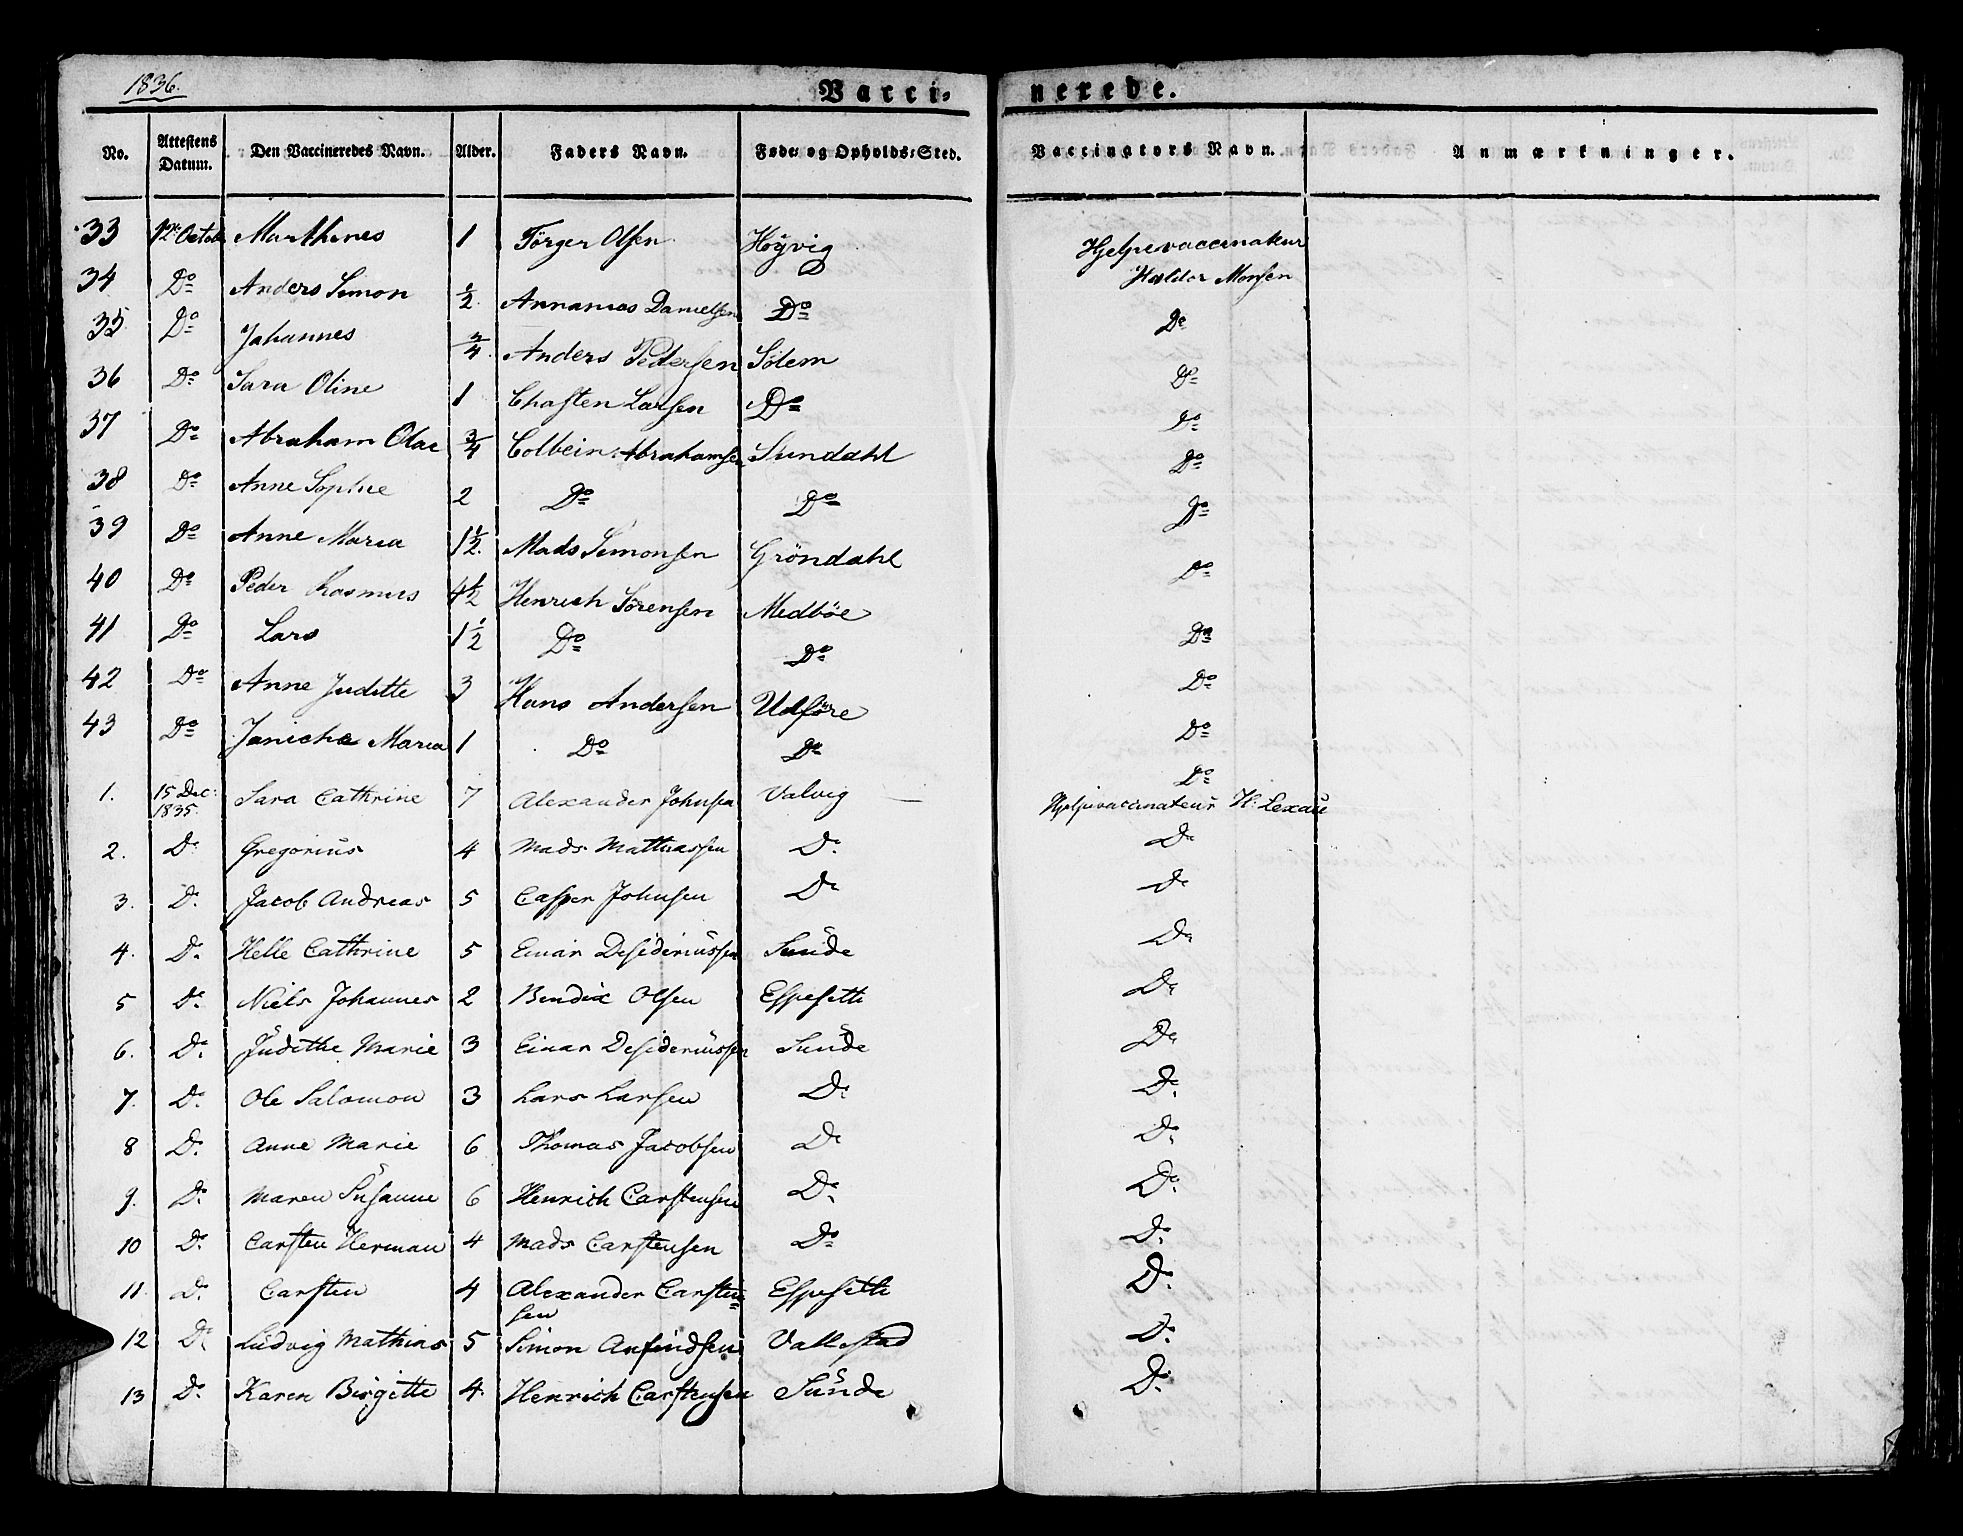 1836.
Vacci-
nerede.
No. Attestens Datum. Den Vaccineredes Navn. Alder. Faders Navn. Føde- og Opholds-Sted. Vaccinators Navn. Anmærkninger.
33 12te Octob Marthines 1 Törger Olsen Höyvig Hjelpevaccinateur Haldor Monsen
34 Do Anders Simon 1/2 Annanias Danielsen Do Do
35 Do Johannes 3/4 Anders Pedersen Sölem Do
36 Do Sara Oline 1 Chasten Larsen Do Do
37 Do Abraham Olai 3/4 Colbein Abrahamsen Sundahl Do
38 Do Anne Sophie 2 Do Do Do
39 Do Anne Maria 1 1/2 Mads Simonsen Gröndahl Do
40 Do Peder Rasmus 4 1/2 Henrich Sörensen Medböe Do
41 Do Lars 1 1/2 Do Do Do
42 Do Anne Juditte 3 Hans Andersen Udföre Do
43 Do Janicha Maria 1 Do Do Do
1. 15 Dec: 1835. Sara Cathrine 7 Alexander Johnsen Valvig Hjelpevaccinateur H. Lexau
2. Do Gregorius 4 Mads Mathiassen Do Do
3. Do Jacob Andreas 5 Casper Johnsen Do Do
4. Do Helle Cathrine 5 Einar Desideriussen Sunde Do
5 Do Niels Johannes 2 Bendix Olsen Espesetti Do
6. Do Judithe Marie 3 Einar Desideriussen Sunde Do
7. Do Ole Salomon 3 Lars Larsen Do Do
8 Do Anne Marie 6 Thomas Jacobsen Do Do
9. Do Maren Susanne 6 Henrich Carstensen Do Do
10 Do Carsten Herman 4 Mads Carstensen Do Do
11. Do Carsten 4 Alexander Carstensen Espesetti Do
12 Do Ludvig Mathias 5 Simon Anfindsen Vallestad Do
13 Do Karen Birgitte 4. Henrich Carstensen Sunde Do